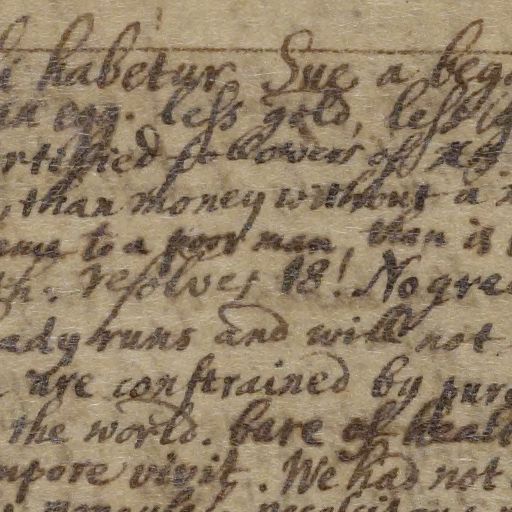 habetur. Sue a beg
egg. less gold, less
rtified followers of Xt
, than money without a
to a poor man, than is
th. resolves 18! No grea
ady runs and will not
are constrained by pure
the world. bare of healt
mpore vivit. We had not